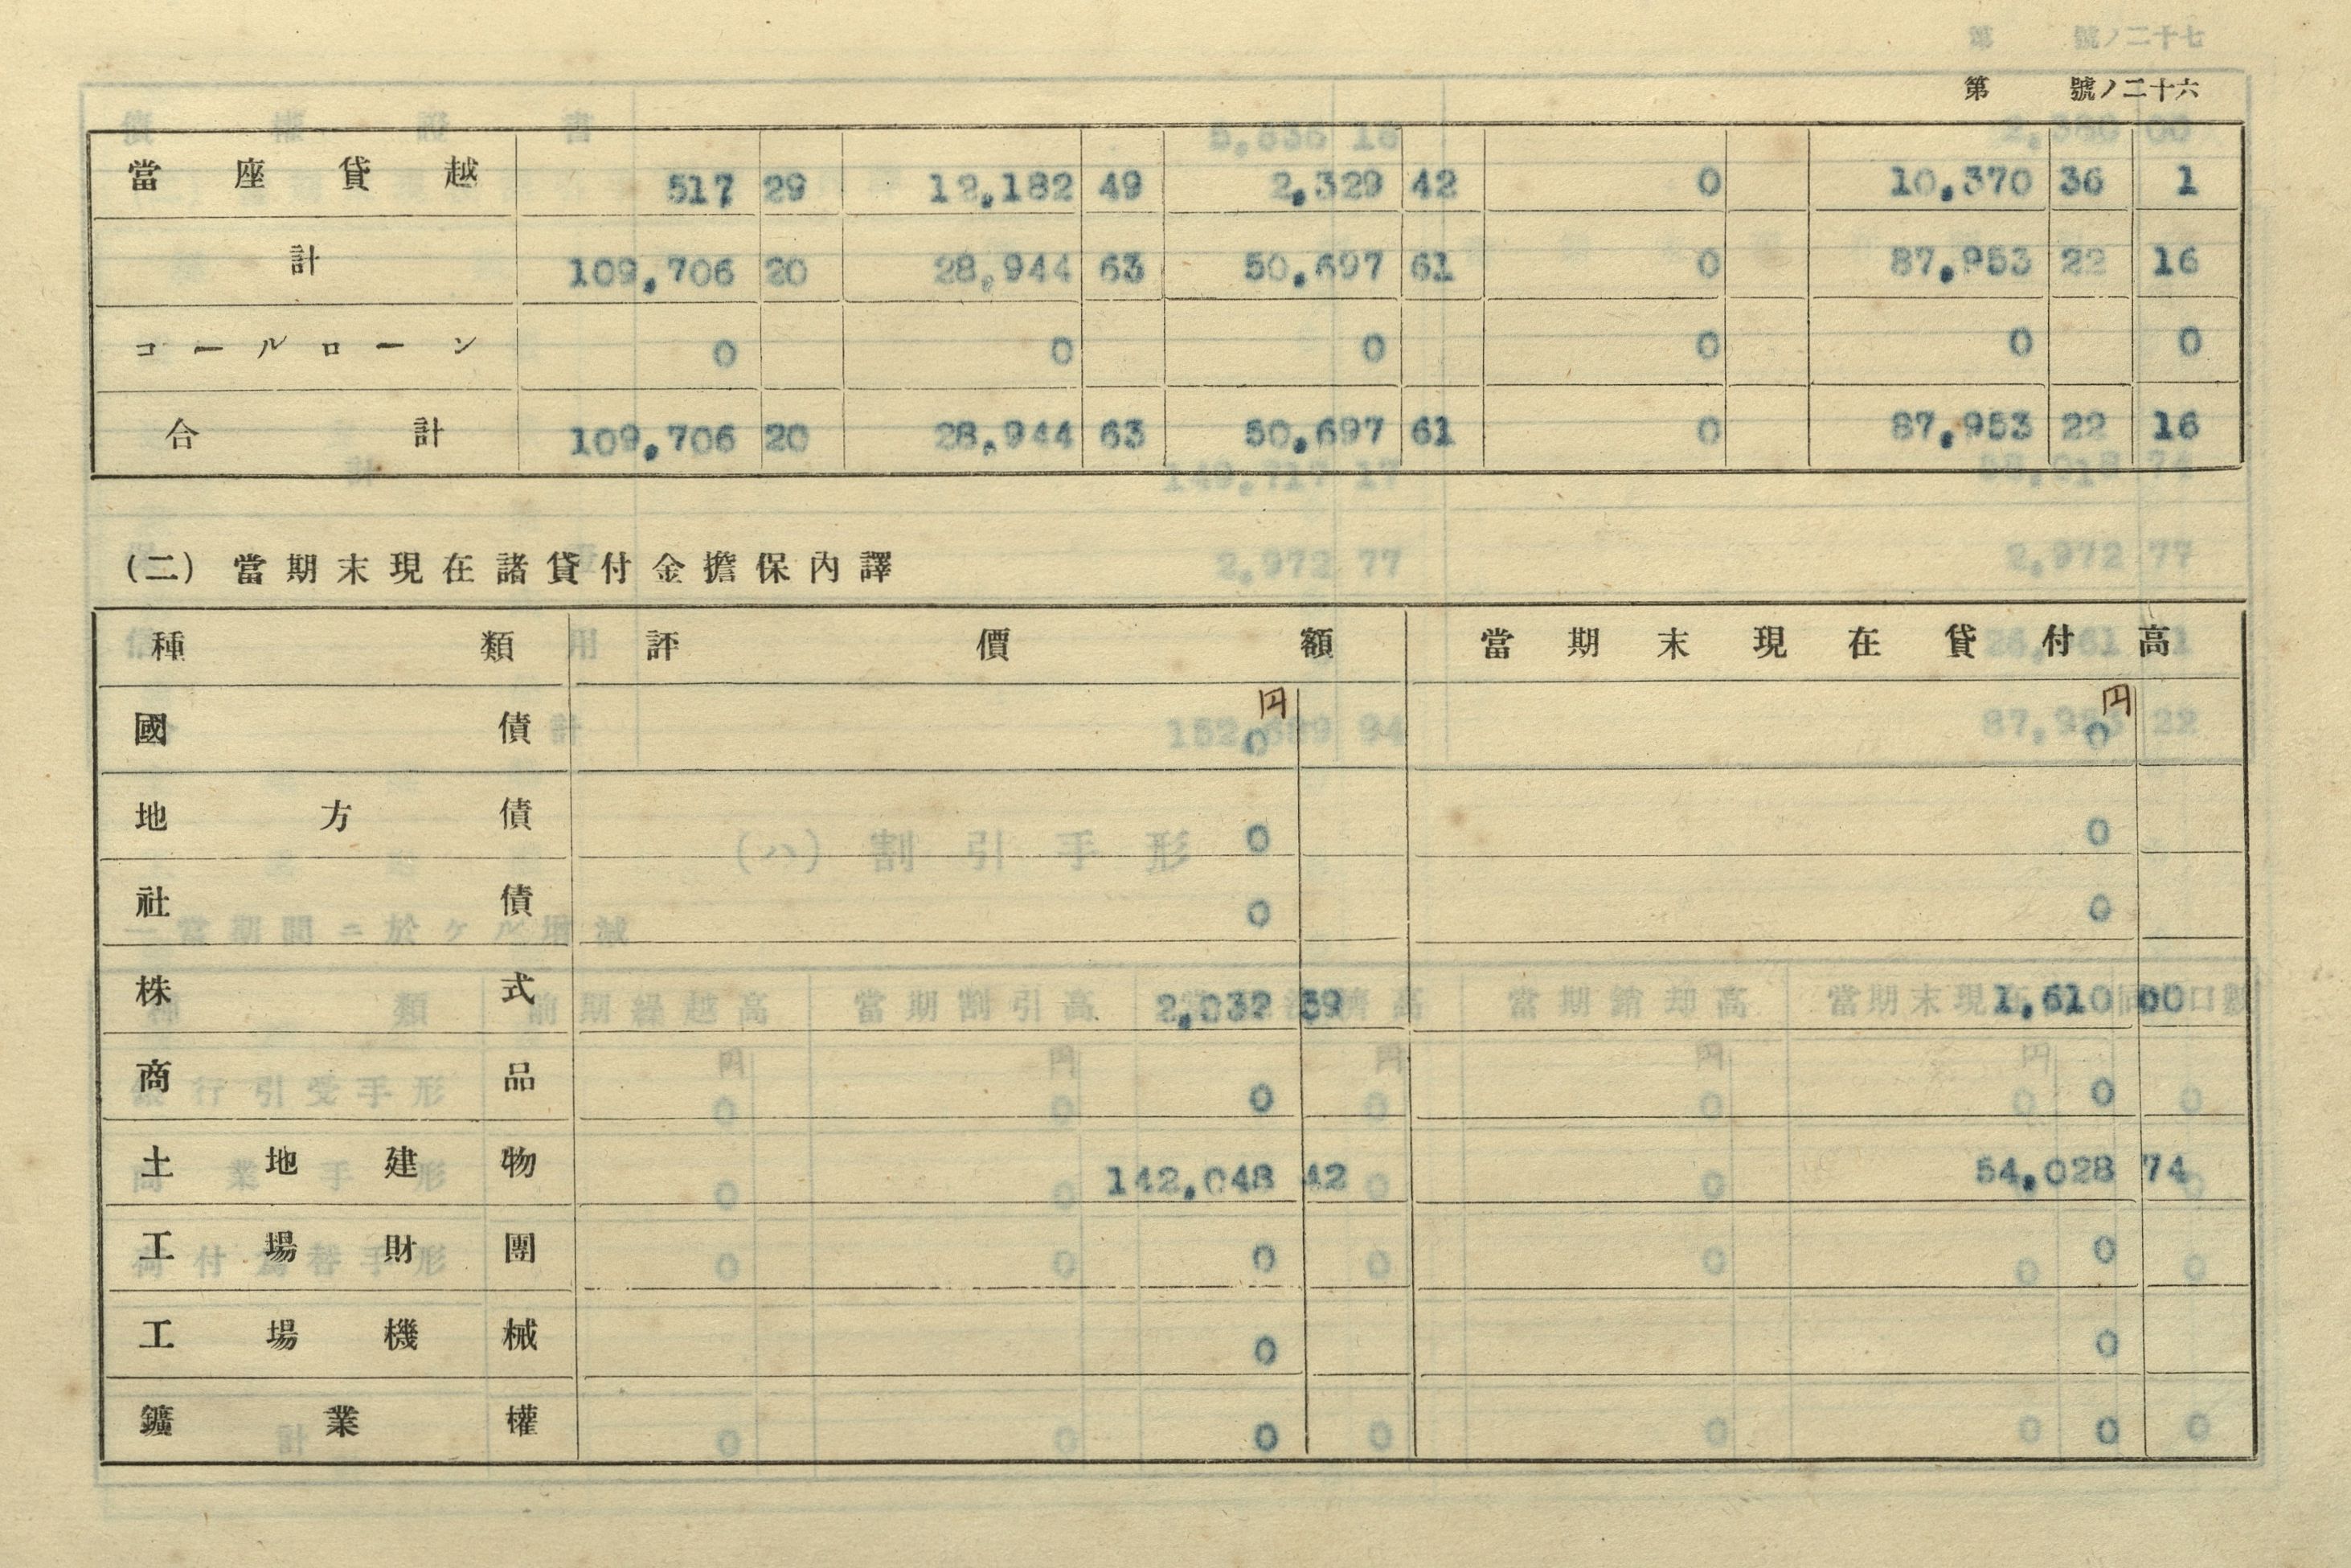 第 號ノ二十六
當座貸越 517 29 12,182 49 2,329 42 0 10,370 36 1
計 109,706 20 28,944 63 50,697 61 0 87,953 22 16
コールローン 0 0 0 0 0 0
合計 109,706 20 28,944 63 50,697 61 0 87,953 22 16
(二) 當期末現在諸貸付金擔保內譯
種類 評價額 當期末現在貸付高
円 円
國債 0 0
地方債 0 0
社債 0 0
株式 2,032 39 1,610 00
商品 0 0
土地建物 142,048 42 54,028 74
工場財團 0 0
工場機械 0 0
鑛業權 0 0